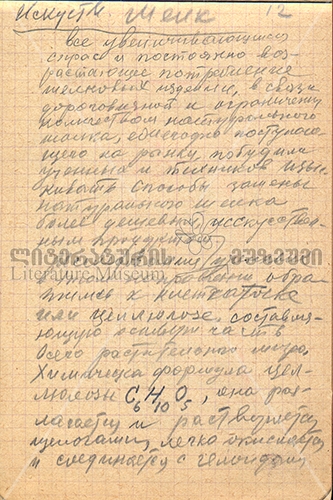 Искуств Шелк 12
все увеличивающийся
спрос и постоянно воз-
растающее потребление
шелковых изделий, в связи
дороговизной и ограниченным
количеством натурального
шелка, ежегодно поступаю-
щего на рынку побудили
ученых и техников изыс-
кивать способы замены
натурального шелка
более дешевым исскуствен-
ным продуктом
ლიტერატურის მუზეუმი
Literature Museum
обра
тились к клетчатке
или целюлозе, составля-
ющую основную часть
всего растительного мира.
Химическа формула цел-
люлозы C6H10O5, она раз-
лагается и растворяется
щелочами, легко окисляется
и соединяется с